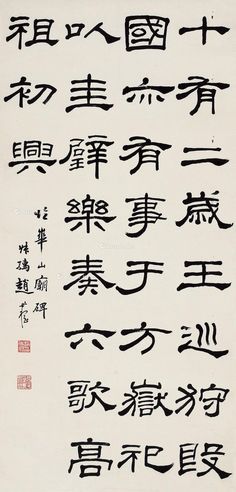 十有二歲王巡狩殷
國亦有事于方嶽祀
以圭璧樂奏六歌高
祖初興
臨華山廟碑
叔孺趙時棡